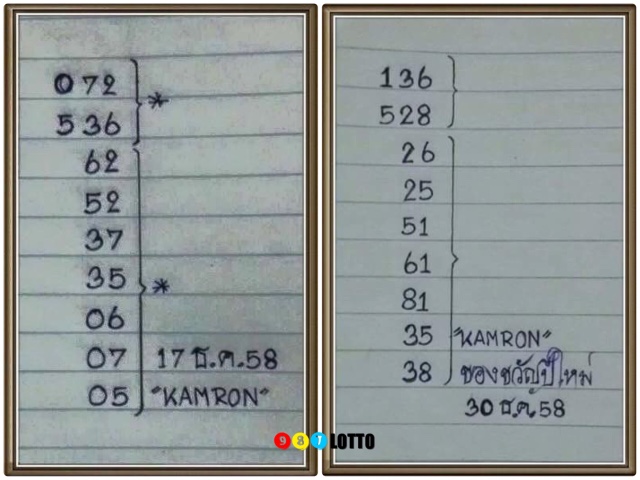 072
536
62
52
37
35
06
07 17 ธ.ค.58
05 "KAMRON"
136
528
26
25
51
61
81
35 "KAMRON"
38 ของขวัญปีใหม่
30 ธ.ค.58
987 LOTTO